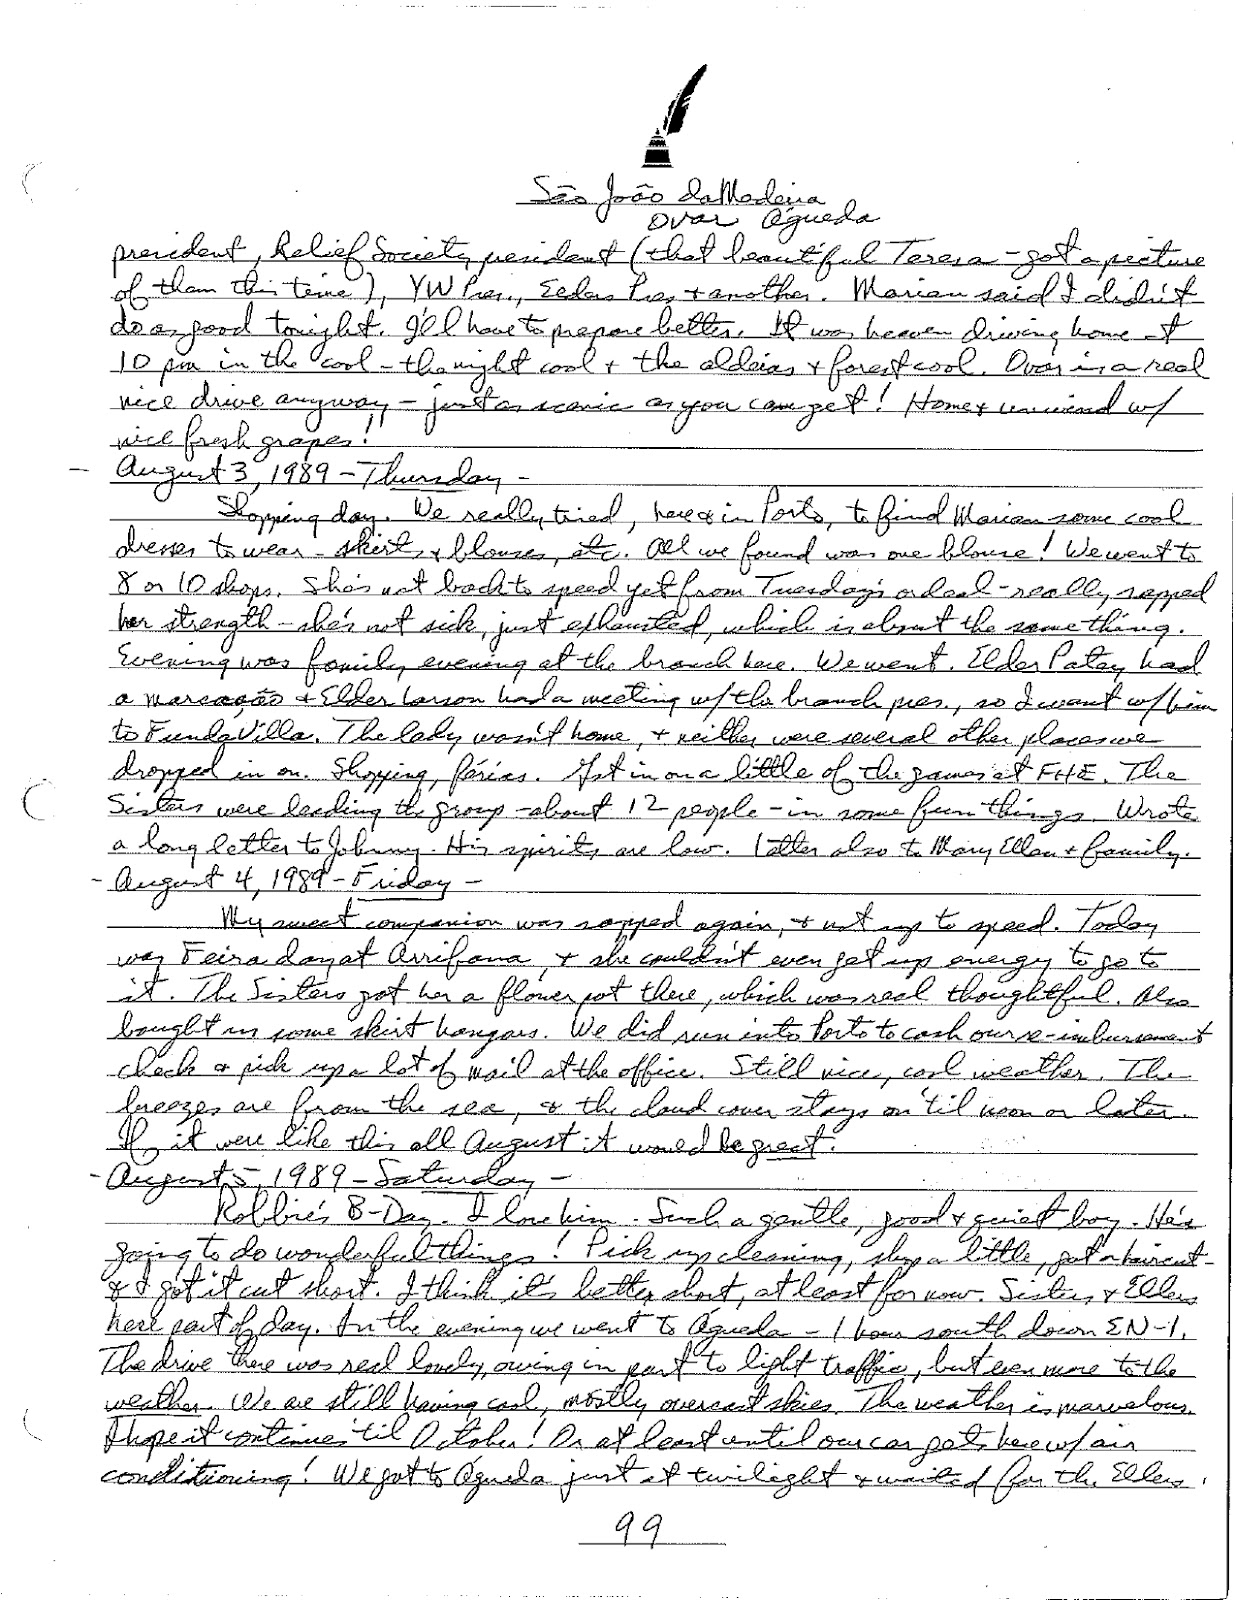 São João da Madeira
Ovar Águeda
president, Relief Society president (that beautiful Teresa - got a picture
of them this time), YW Pres., Elders Pres + another. Marian said I didn't
do as good tonight. I'll have to prepare better. It was heaven driving home at
10 pm in the cool - the night cool + the aldeias + forest cool. Ovar is a real
nice drive anyway - just as scenic as you can get! Home + unwind w/
nice fresh grapes!
- August 3, 1989 - Thursday -
Shopping day. We really tried, here & in Porto, to find Marian some cool
dresses to wear - skirts & blouses, etc. All we found was one blouse! We went to
8 or 10 shops. She's not back to speed yet from Tuesday's ordeal - really sapped
her strength - she's not sick, just exhausted, which is about the same thing.
Evening was family evening at the branch here. We went. Elder Patey had
a marcação + Elder Larson had a meeting w/ the branch pres., so I went w/ him
to Funda Villa. The lady wasn't home, + neither were several other places we
dropped in on. Shopping, férias. Got in on a little of the games at FHE. The
Sisters were leading the group - about 12 people - in some fun things. Wrote
a long letter to Johnny. His spirits are low. Letter also to Mary Ellen + family.
- August 4, 1989 - Friday -
My sweet companion was sapped again, + not up to speed. Today
was Feira day at Arrifana, + she couldn't even get up energy to go to
it. The Sisters got her a flower pot there, which was real thoughtful. Also
bought us some skirt hangars. We did run into Porto to cash our re-imbursement
check & pick up a lot of mail at the office. Still nice, cool weather. The
breezes are from the sea, & the cloud cover stays on 'til noon or later.
If it were like this all August it would be great.
- August 5, 1989 - Saturday -
Robbie's B-Day. I love him. Such a gentle, good + quiet boy. He's
going to do wonderful things! Pick up cleaning, shop a little, got a haircut -
& I got it cut short. I think it's better short, at least for now. Sisters & Elders
here part of day. In the evening we went to Águeda - 1 hour south down EN-1.
The drive there was real lovely, owing in part to light traffic, but even more to the
weather. We are still having cool, mostly overcast skies. The weather is marvelous.
I hope it continues 'til October! Or at least until our car gets here w/ air
conditioning! We got to Águeda just at twilight & waited for the Elders.
99